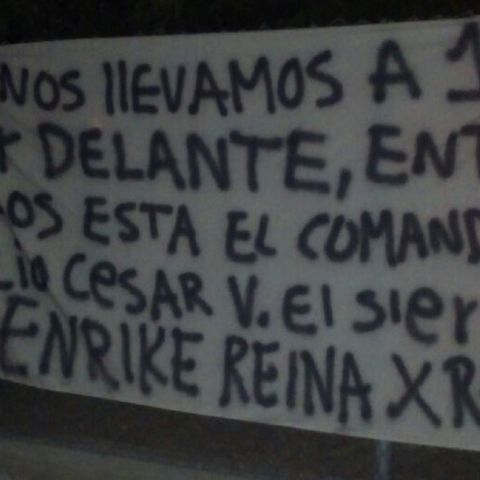 NOS llEVAMOS A 1
DELANTE, ENT
OS ESTA EL COMAND
Lio CESAR V. El sier
ENRIKE REINA X R